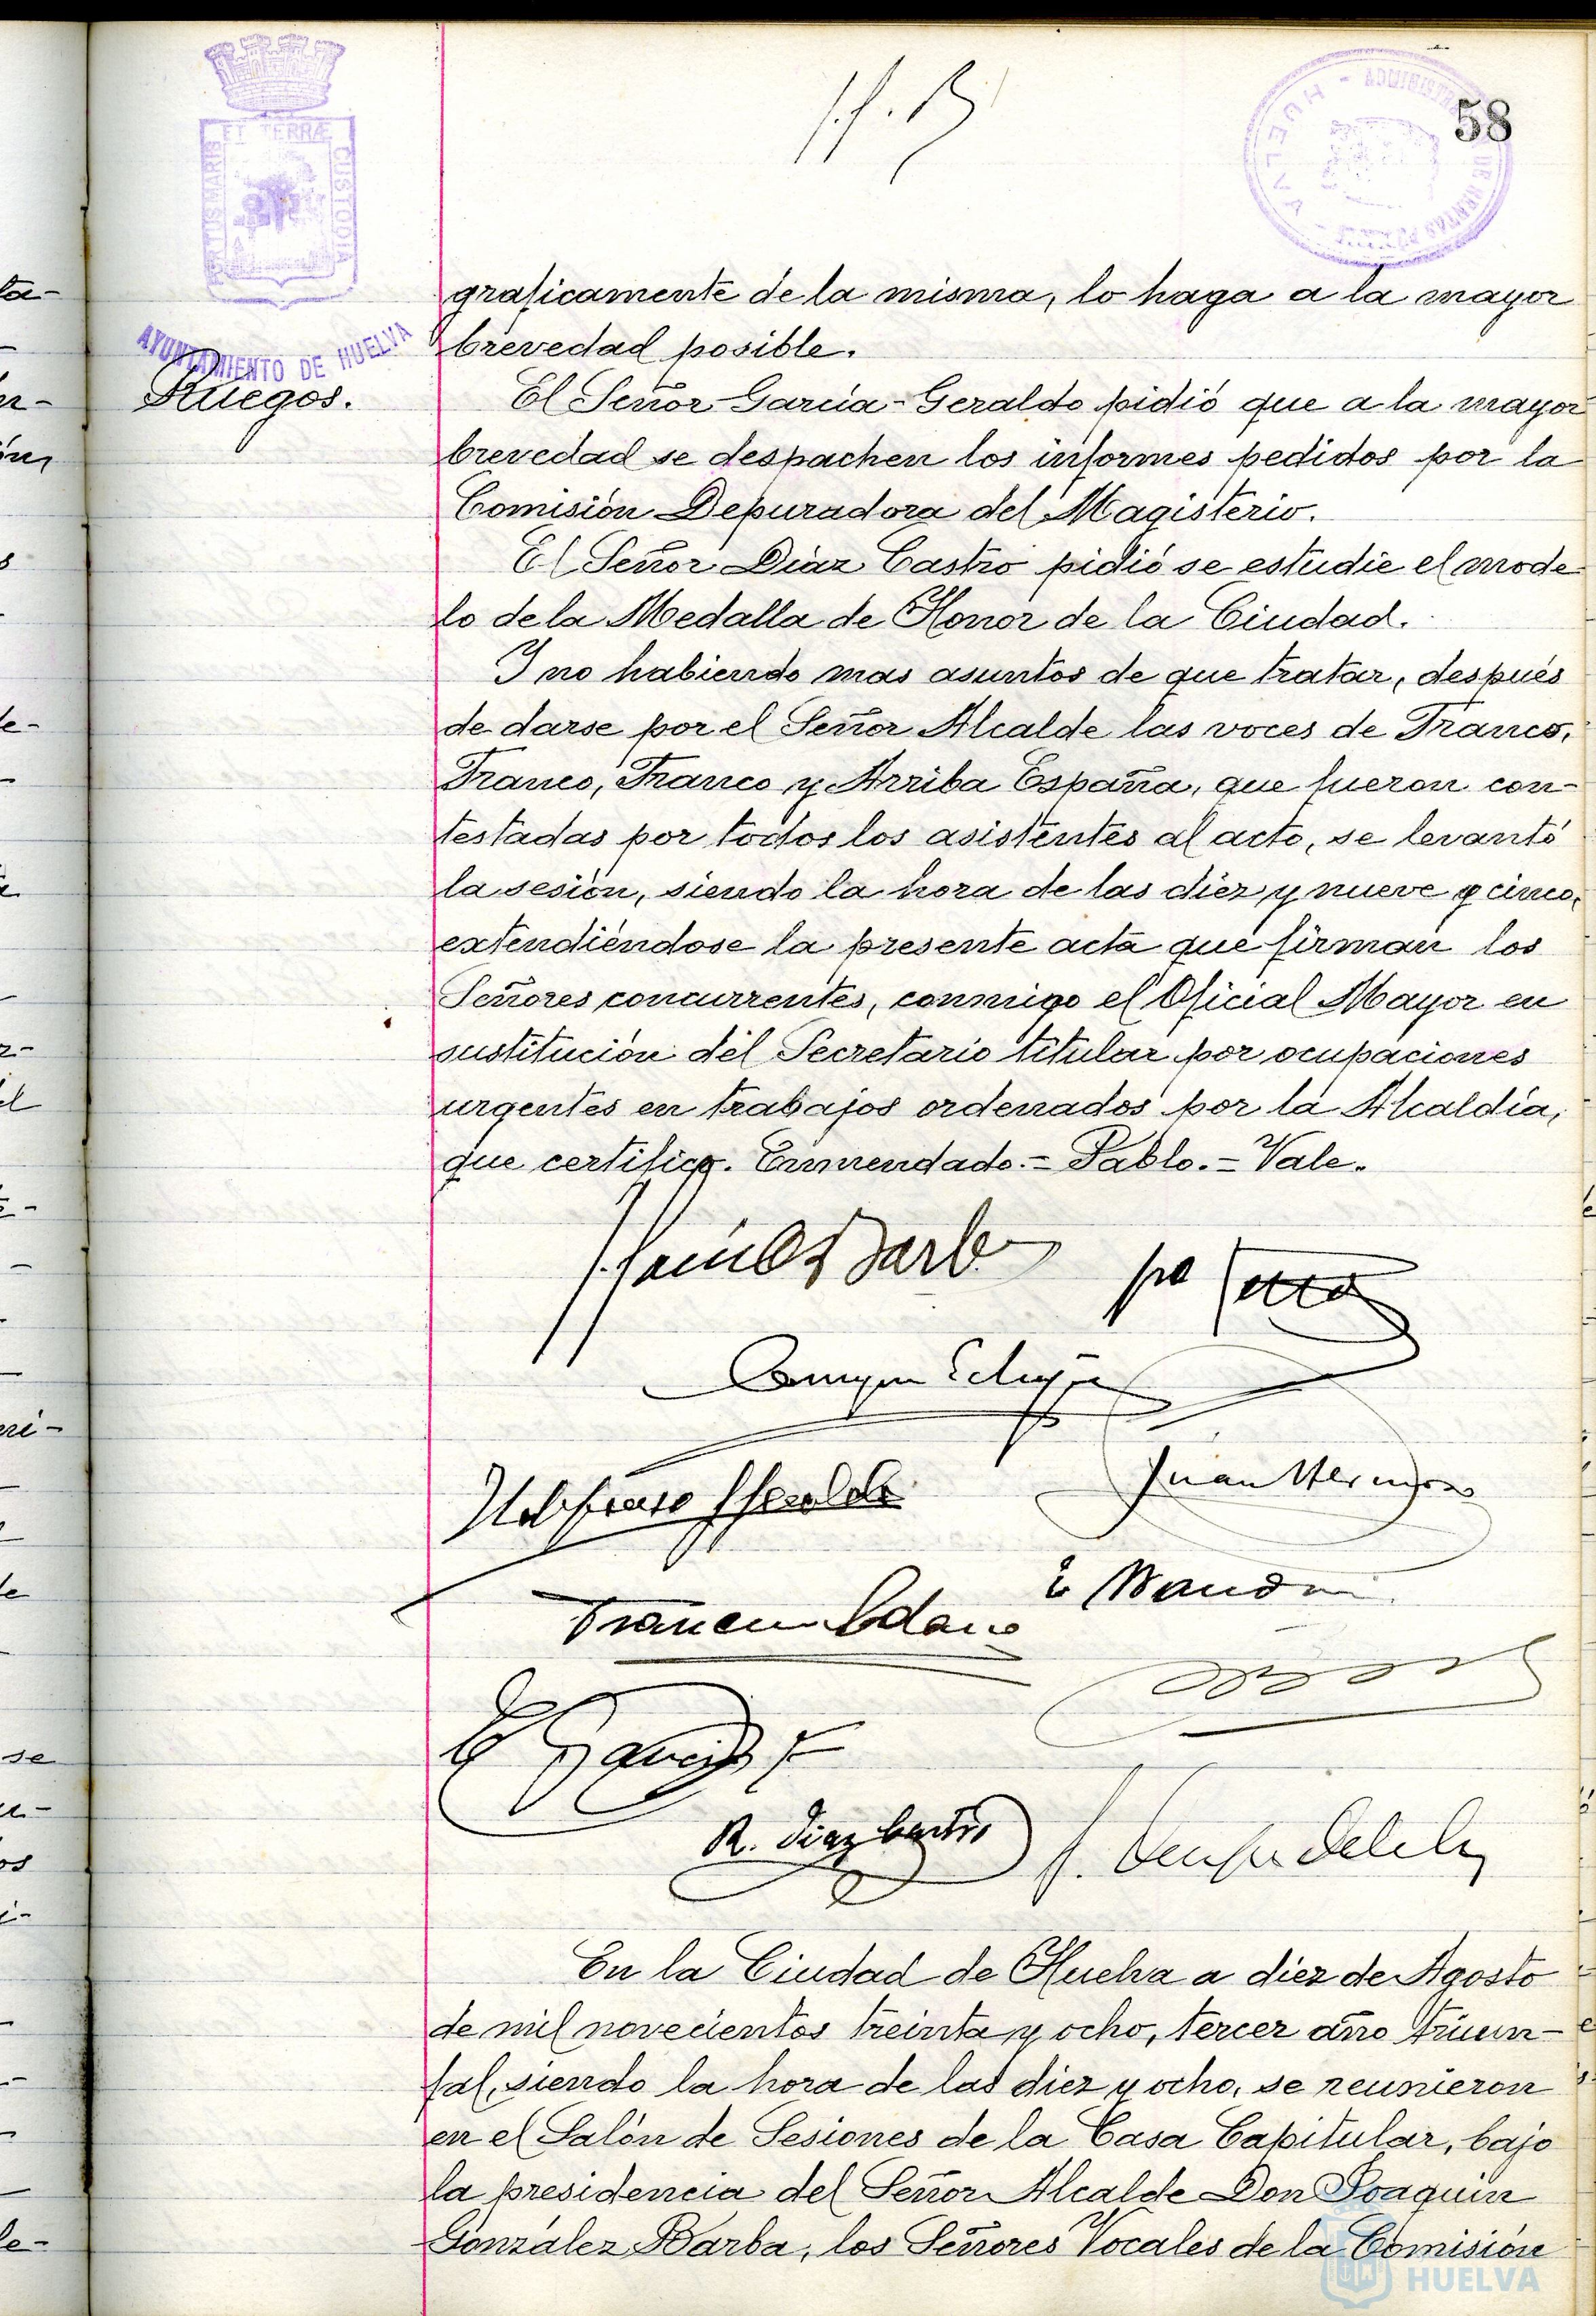 58
ET TERRÆ
PORTUS MARIS
CUSTODIA
AYUNTAMIENTO DE HUELVA
HUELVA - ADMINISTR
DE RENTAS
graficamente de la misma, lo haga a la mayor
brevedad posible.
Ruegos.
El Señor García-Geraldo pidió que a la mayor
brevedad se despachen los informes pedidos por la
Comisión Depuradora del Magisterio.
El Señor Díaz Castro pidió se estudie el mode
lo de la Medalla de Honor de la Ciudad.
Y no habiendo mas asuntos de que tratar, después
de darse por el Señor Alcalde las voces de Franco,
Franco, Franco y Arriba España, que fueron con-
testadas por todos los asistentes al acto, se levantó
la sesión, siendo la hora de las diez y nueve y cinco,
extendiéndose la presente acta que firman los
Señores concurrentes, conmigo el Oficial Mayor en
sustitución del Secretario titular por ocupaciones
urgentes en trabajos ordenados por la Alcaldía,
que certifico. Enmendado.=Pablo.=Vale.
Barba
Juan
R. Diaz Castro
En la Ciudad de Huelva a diez de Agosto
de mil novecientos treinta y ocho, tercer año triun-
fal, siendo la hora de las diez y ocho, se reunieron
en el Salón de Sesiones de la Casa Capitular, bajo
la presidencia del Señor Alcalde Don Joaquín
González Barba, los Señores Vocales de la Comisión
HUELVA